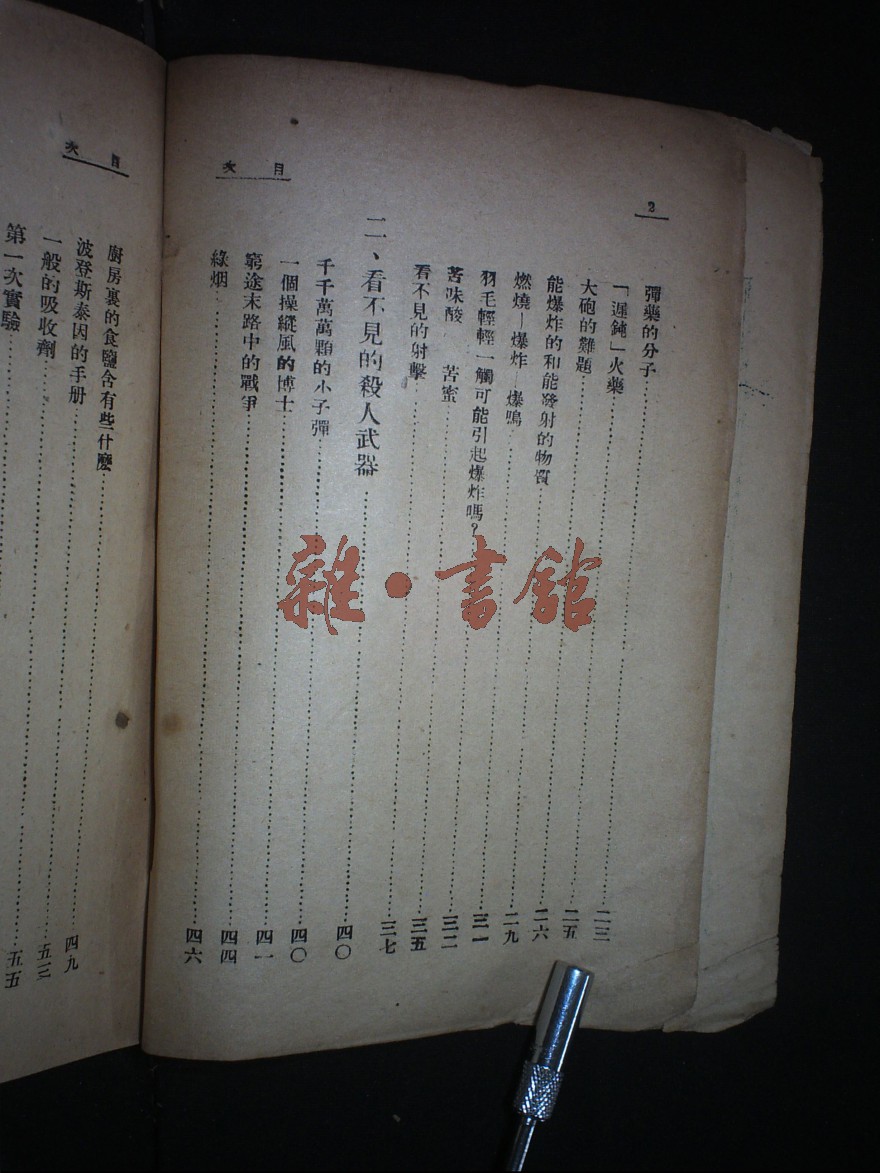 2
目次
彈藥的分子……二三
「遲鈍」火藥……二五
大砲的難題……二六
能爆炸的和能發射的物質……二九
燃燒—爆炸—爆鳴……三一
羽毛輕輕一觸可能引起爆炸嗎?……三二
苦味酸　苦蜜……三五
看不見的射擊……三七
二、看不見的殺人武器……四〇
千千萬萬顆的小子彈……四〇
一個操縱風的博士……四一
窮途末路中的戰爭……四四
綠烟……四六
目次
廚房裏的食鹽含有些什麼……四九
波登斯泰因的手册……五三
一般的吸收劑……五五
第一次實驗……
雜·書館